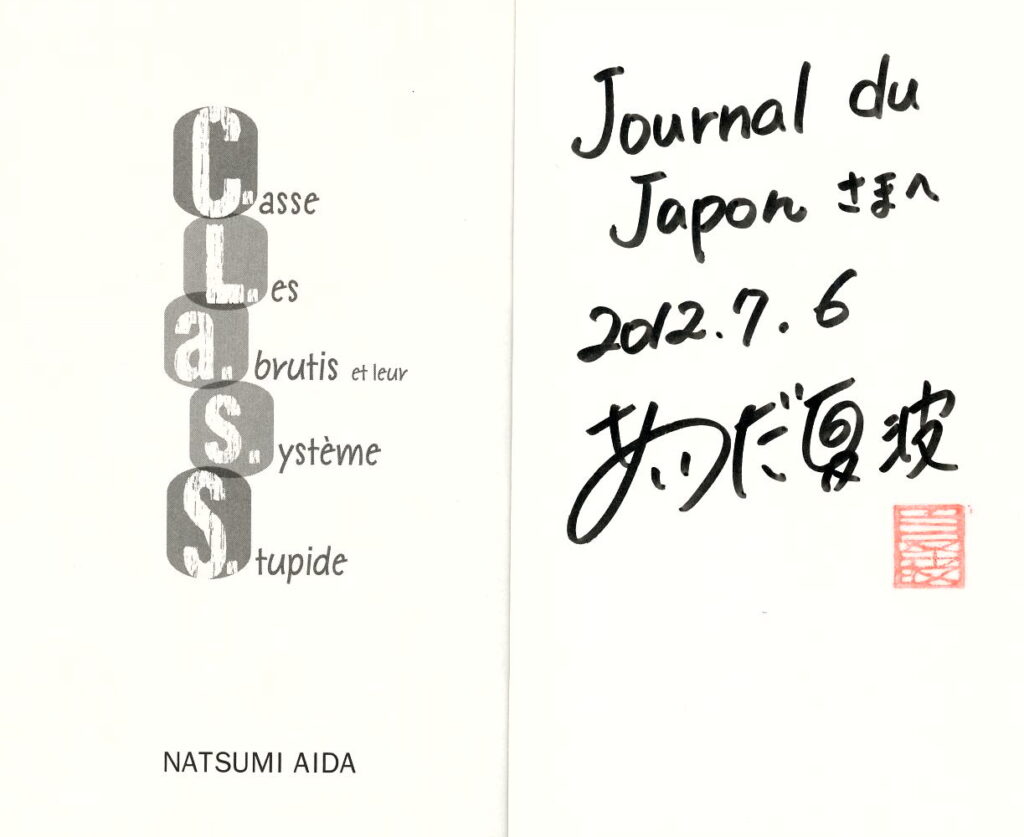 C.asse
L.es
a.brutis et leur
s.ystème
S.tupide
NATSUMI AIDA
Journal du
Japon さまへ
2012.7.6
あいだ夏波